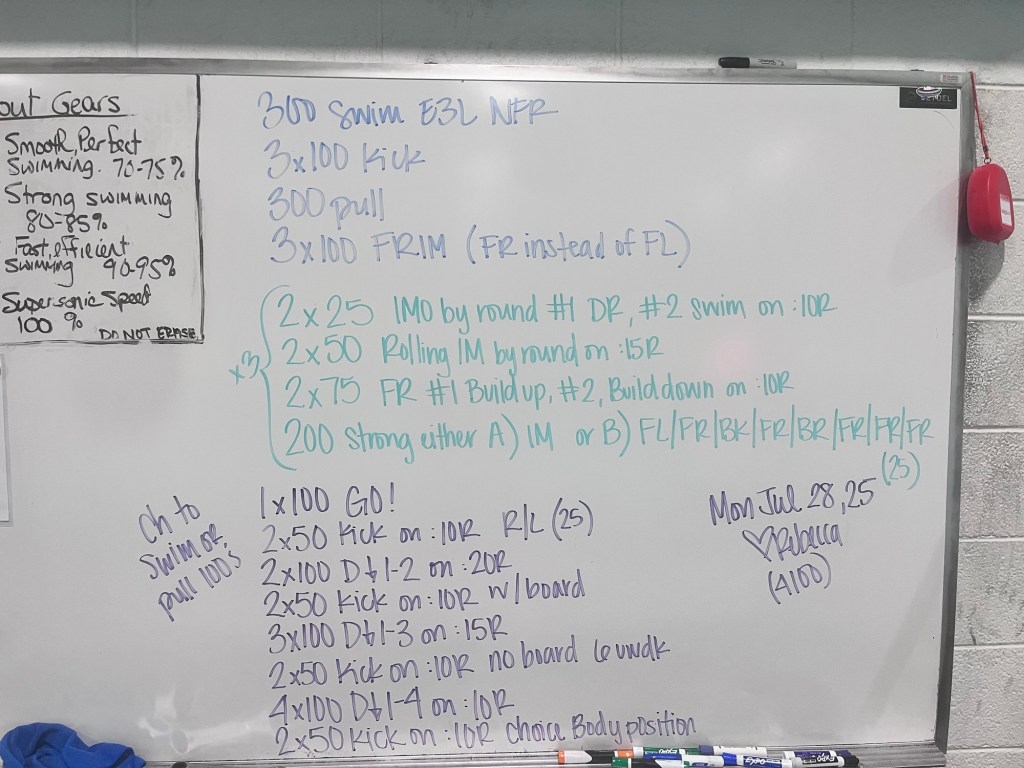 out Gears
Smooth, Perfect
SWIMMING. 70-75%
Strong SWIMMING
80-85%
Fast, efficient
SWIMMING 90-95%
Supersonic Speed
100 %
DO NOT ERASE
300 Swim E3L NFR
3x100 Kick
300 pull
3x100 FRIM (FR instead of FL)
x3
2x25 IMO by round #1 DR, #2 swim on :10R
2x50 Rolling IM by round on :15R
2x75 FR #1 Build up, #2, Build down on :10R
200 Strong either A) IM or B) FL/FR/BK/FR/BR/FR/FR/FR
(25)
Ch to
Swim or
pull 100s
1x100 GO!
2x50 Kick on :10R R/L (25)
2x100 D↓1-2 on :20R
2x50 Kick on :10R w/board
3x100 D↓1-3 on :15R
2x50 Kick on :10R no board 6uwdk
4x100 D↓1-4 on :10R
2x50 Kick on :10R choice Body position
Mon Jul 28, 25
♡Rebecca
(4100)